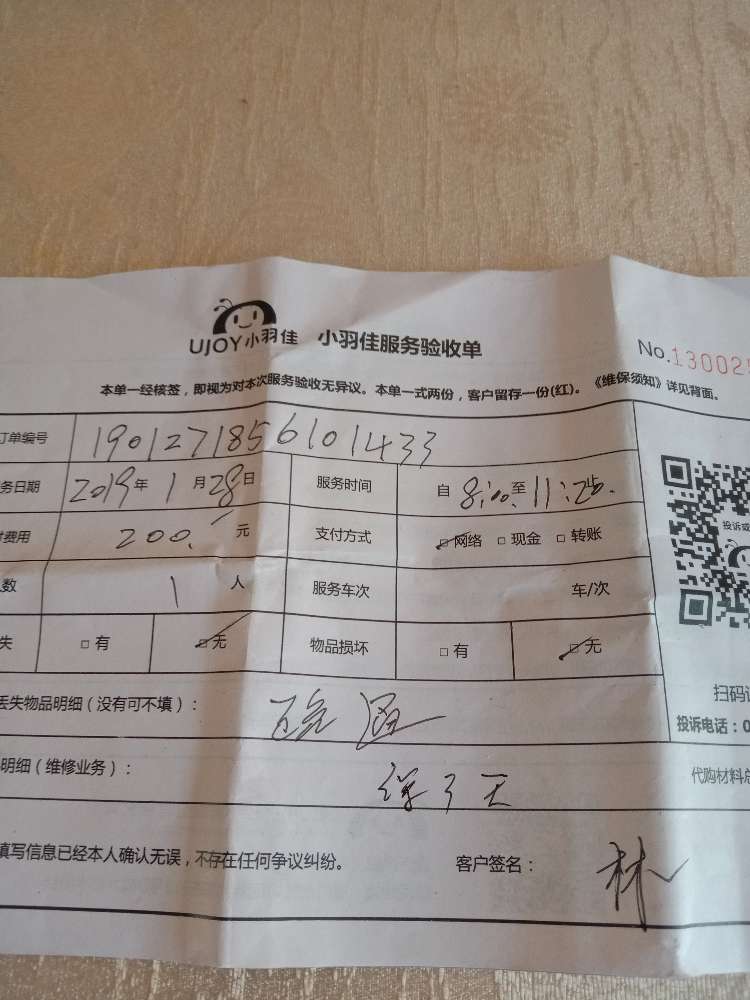 UJOY小羽佳 小羽佳服务验收单
No.13002
本单一经核签，即视为对本次服务验收无异议。本单一式两份，客户留存一份(红)。《维保须知》详见背面。
订单编号 1901271856101433
务日期 2019年1月28日 服务时间 自 8:00至11:25.
费用 200.元 支付方式 □网络 □现金 □转账
数 1人 服务车次 车/次
失 □有 □无 物品损坏 □有 □无
投诉或
扫码
丢失物品明细（没有可不填）：
投诉电话：0
明细（维修业务）：
代购材料总
填写信息已经本人确认无误，不存在任何争议纠纷。 客户签名： 林